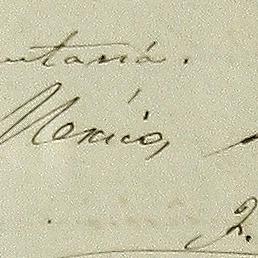 utaria.
México,
J.